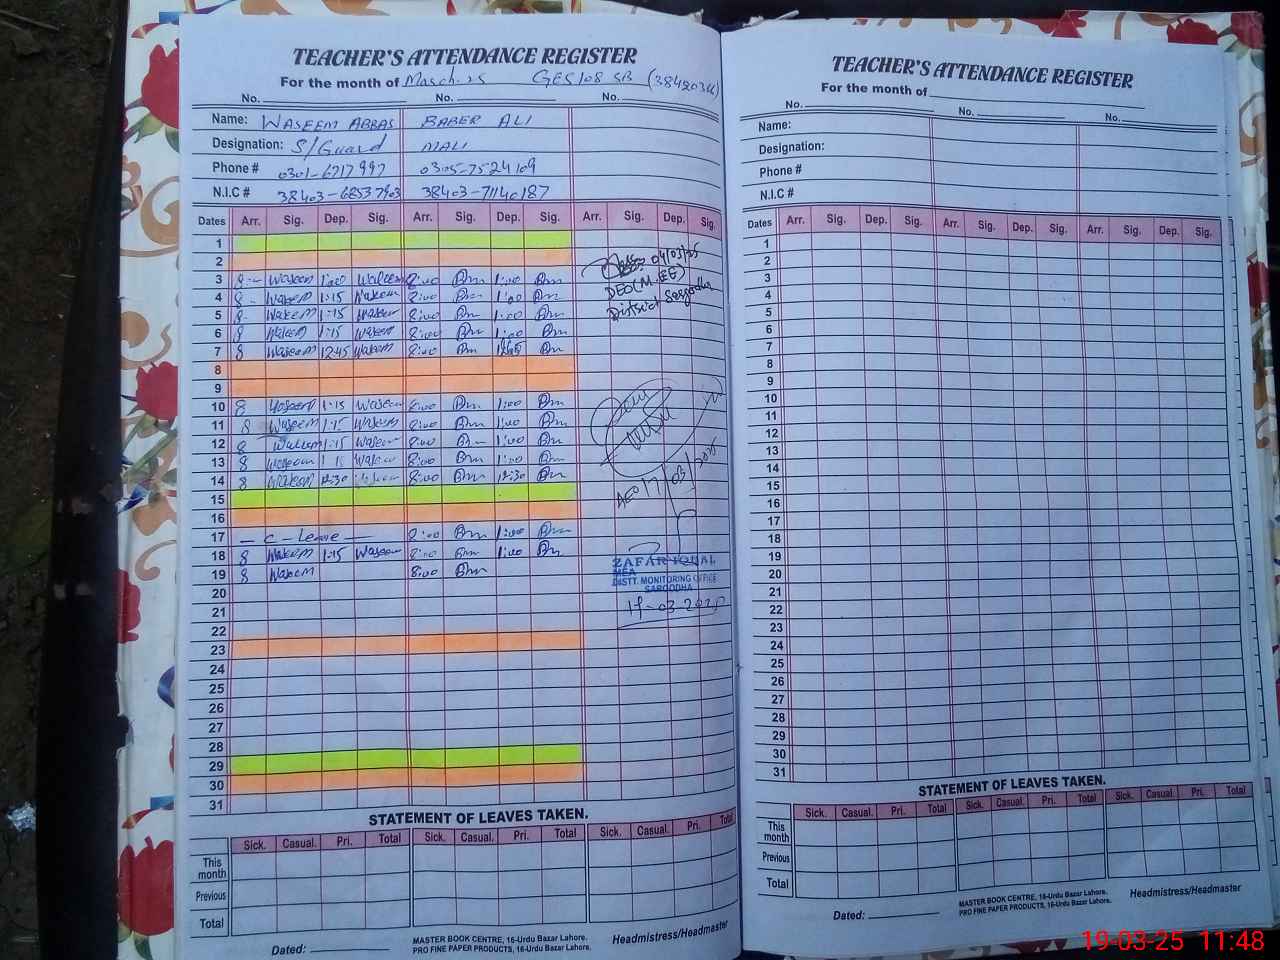 TEACHER'S ATTENDANCE REGISTER
For the month of March-25 GES 108 SB
No. No. No.
Name: WASEEM ABBAS BABER ALI
Designation: S/Guard MALI
Phone # 0301-6717997 0305-7524109
N.I.C # 38403-68537903 38403-71140187
Dates Arr. Sig. Dep. Sig. Arr. Sig. Dep. Sig. Arr. Sig. Dep. Sig.
1
2
3 8 - Waseem 1:00 Waseem 8:00 Bm 1:00 Bm 04/03/25
4 8 - Waseem 1:15 Waseem 8:00 Bm 1:00 Bm DEO(M.EE)
5 8 - Waseem 1:15 Waseem 8:00 Bm 1:00 Bm District Sargodha
6 8 Waseem 1:15 Waseem 8:00 Bm 1:00 Bm
7 8 Waseem 12:45 Waseem 8:00 Bm Bm
8
9
10 8 Waseem 1:15 Waseem 8:00 Bm 1:00 Bm
11 8 Waseem 1:15 Waseem 8:00 Bm 1:00 Bm
12 8 Waseem 1:15 Waseem 8:00 Bm 1:00 Bm
13 8 Waseem 1:15 Waseem 8:00 Bm 1:00 Bm
14 8 Waseem 12:30 Waseem 8:00 Bm 12:30 Bm AEO 17/03/2025
15
16
17 - C - Leave - 8:00 Bm 1:00 Bm
18 8 Waseem 1:15 Waseem 8:00 Bm 1:00 Bm ZAFAR IQBAL
19 8 Waseem 8:00 Bm MEA
DISTT. MONITORING OFFICE
SARGODHA
20
21 19-03-2025
22
23
24
25
26
27
28
29
30
31
STATEMENT OF LEAVES TAKEN.
Sick. Casual. Pri. Total Sick. Casual. Pri. Total Sick. Casual. Pri. Total
This month
Previous
Total
Dated: MASTER BOOK CENTRE, 16-Urdu Bazar Lahore. Headmistress/Headmaster
PRO FINE PAPER PRODUCTS, 16-Urdu Bazar Lahore.
TEACHER'S ATTENDANCE REGISTER
For the month of
No. No. No.
Name:
Designation:
Phone #
N.I.C #
Dates Arr. Sig. Dep. Sig. Arr. Sig. Dep. Sig. Arr. Sig. Dep. Sig.
1
2
3
4
5
6
7
8
9
10
11
12
13
14
15
16
17
18
19
20
21
22
23
24
25
26
27
28
29
30
31
STATEMENT OF LEAVES TAKEN.
Sick. Casual. Pri. Total Sick. Casual. Pri. Total Sick. Casual. Pri. Total
This month
Previous
Total
Dated: MASTER BOOK CENTRE, 16-Urdu Bazar Lahore. Headmistress/Headmaster
PRO FINE PAPER PRODUCTS, 16-Urdu Bazar Lahore.
19-03-25 11:48